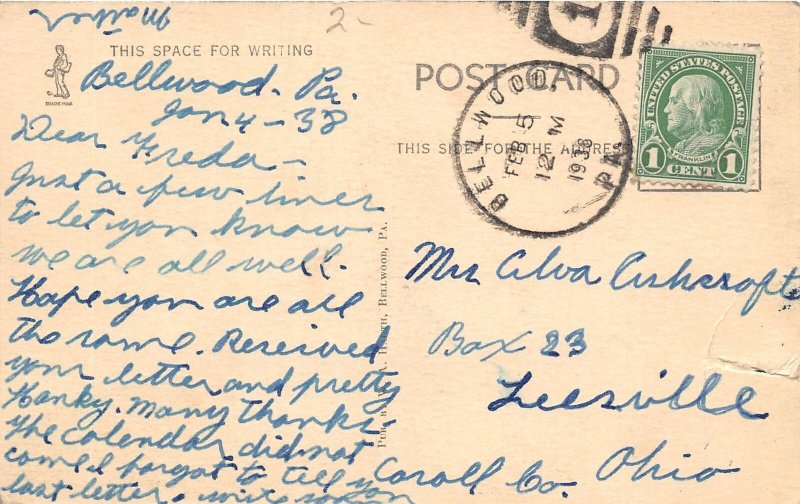 Mother
2-
THIS SPACE FOR WRITING
Bellwood. Pa.
Jan 4 - 38
Dear Freda -
Just a few lines
to let you know
we are all well.
Hope you are all
the same. Received
your letter and pretty
Hanky. Many thanks.
The calendar did not
come I forgot to tell you
last letter.
POST CARD
THIS SIDE FOR THE ADDRESS
BELLWOOD, PA.
FEB 5
12 M
1938
1
UNITED STATES POSTAGE
FRANKLIN
1 CENT 1
BELLWOOD, PA.
Mrs Alva Ashcraft
Box 23
Leesville
Caroll Co. Ohio